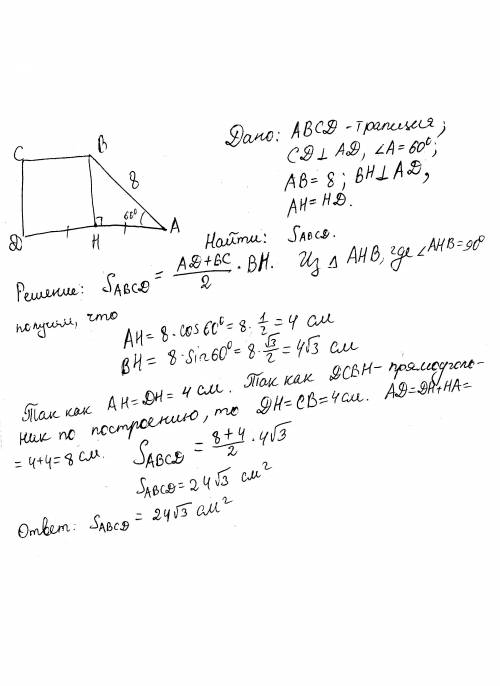 Дано: ABCD - трапиция;
CD⊥AD, ∠A=60°;
AB=8; BH⊥AD,
AH=HD.
C B
8
60°
D H A
Найти: S_ABCD.
Решение: S_ABCD = (AD+BC)/2 · BH. Из △ AHB, где ∠AHB=90°
получим, что
AH = 8·cos60° = 8·1/2 = 4 см
BH = 8·sin60° = 8·√3/2 = 4√3 см
Так как AH=DH=4 см. Так как DCBH - прямоуголь-
ник по построению, то DH=CB=4см. AD=DH+HA=
=4+4=8 см. S_ABCD = (8+4)/2 · 4√3
S_ABCD = 24√3 см²
Ответ: S_ABCD = 24√3 см²